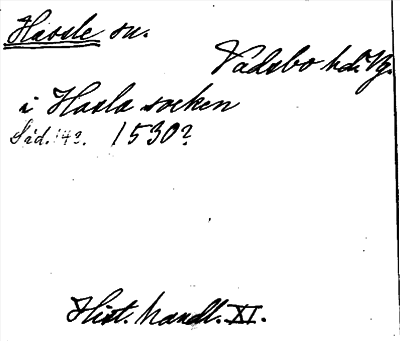 Hassle sn.
Vadsbo hd. Vg.
i Hasla socken
Sid. 143. 1530?
Hist. handl. XI.